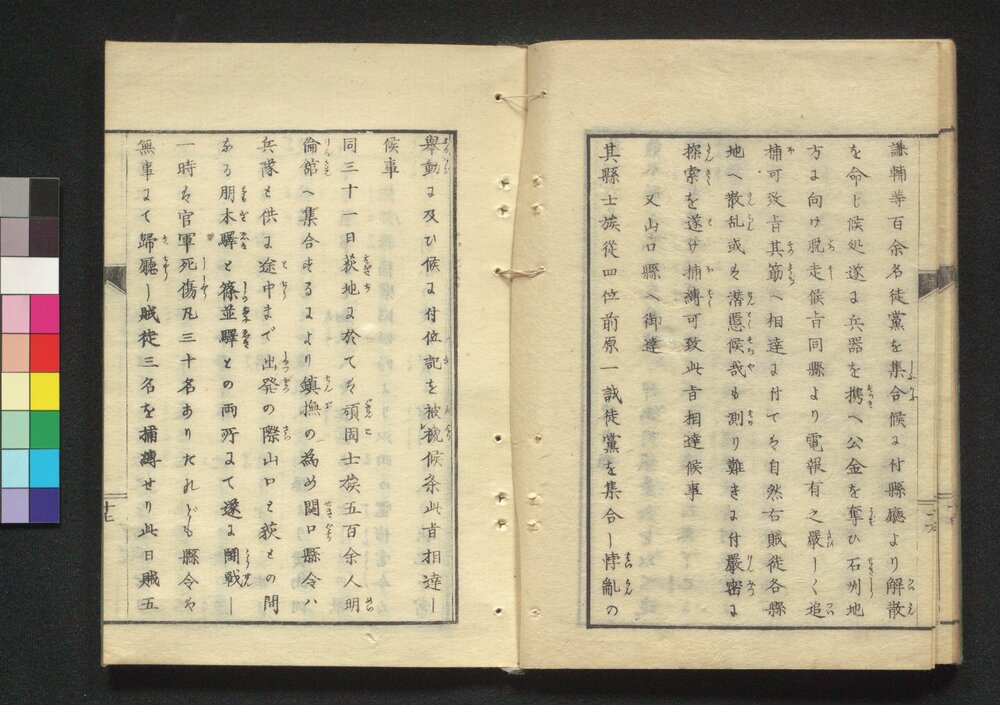 謙輔等百余名徒黨を集合候に付縣廳より解散
を命じ候処遂に兵器を携へ公金を奪ひ石州地
方に向け脱走候旨同縣より電報有之嚴しく追
捕可致旨其筋へ相達に付ては自然右賊徒各縣
地へ散乱或は潜慝候哉も測り難きに付嚴密に
探索を遂け捕縛可致此旨相達候事
又山口縣へ御達
其縣士族従四位前原一誠徒黨を集合し悖亂の
舉動に及ひ候に付位記を被褫候条此旨相達し
候事
同三十一日萩地に於ては頑固士族五百余人明
倫館へ集合するにより鎮撫の為め関口縣令ハ
兵隊と供に途中まで出発の際山口と萩との間
なる明木驛と篠並驛との両所にて遂に闘戰し
一時は官軍死傷凡三十名ありたれども縣令は
無事にて歸廳し賊徒三名を捕縛せり此日賊五
十七